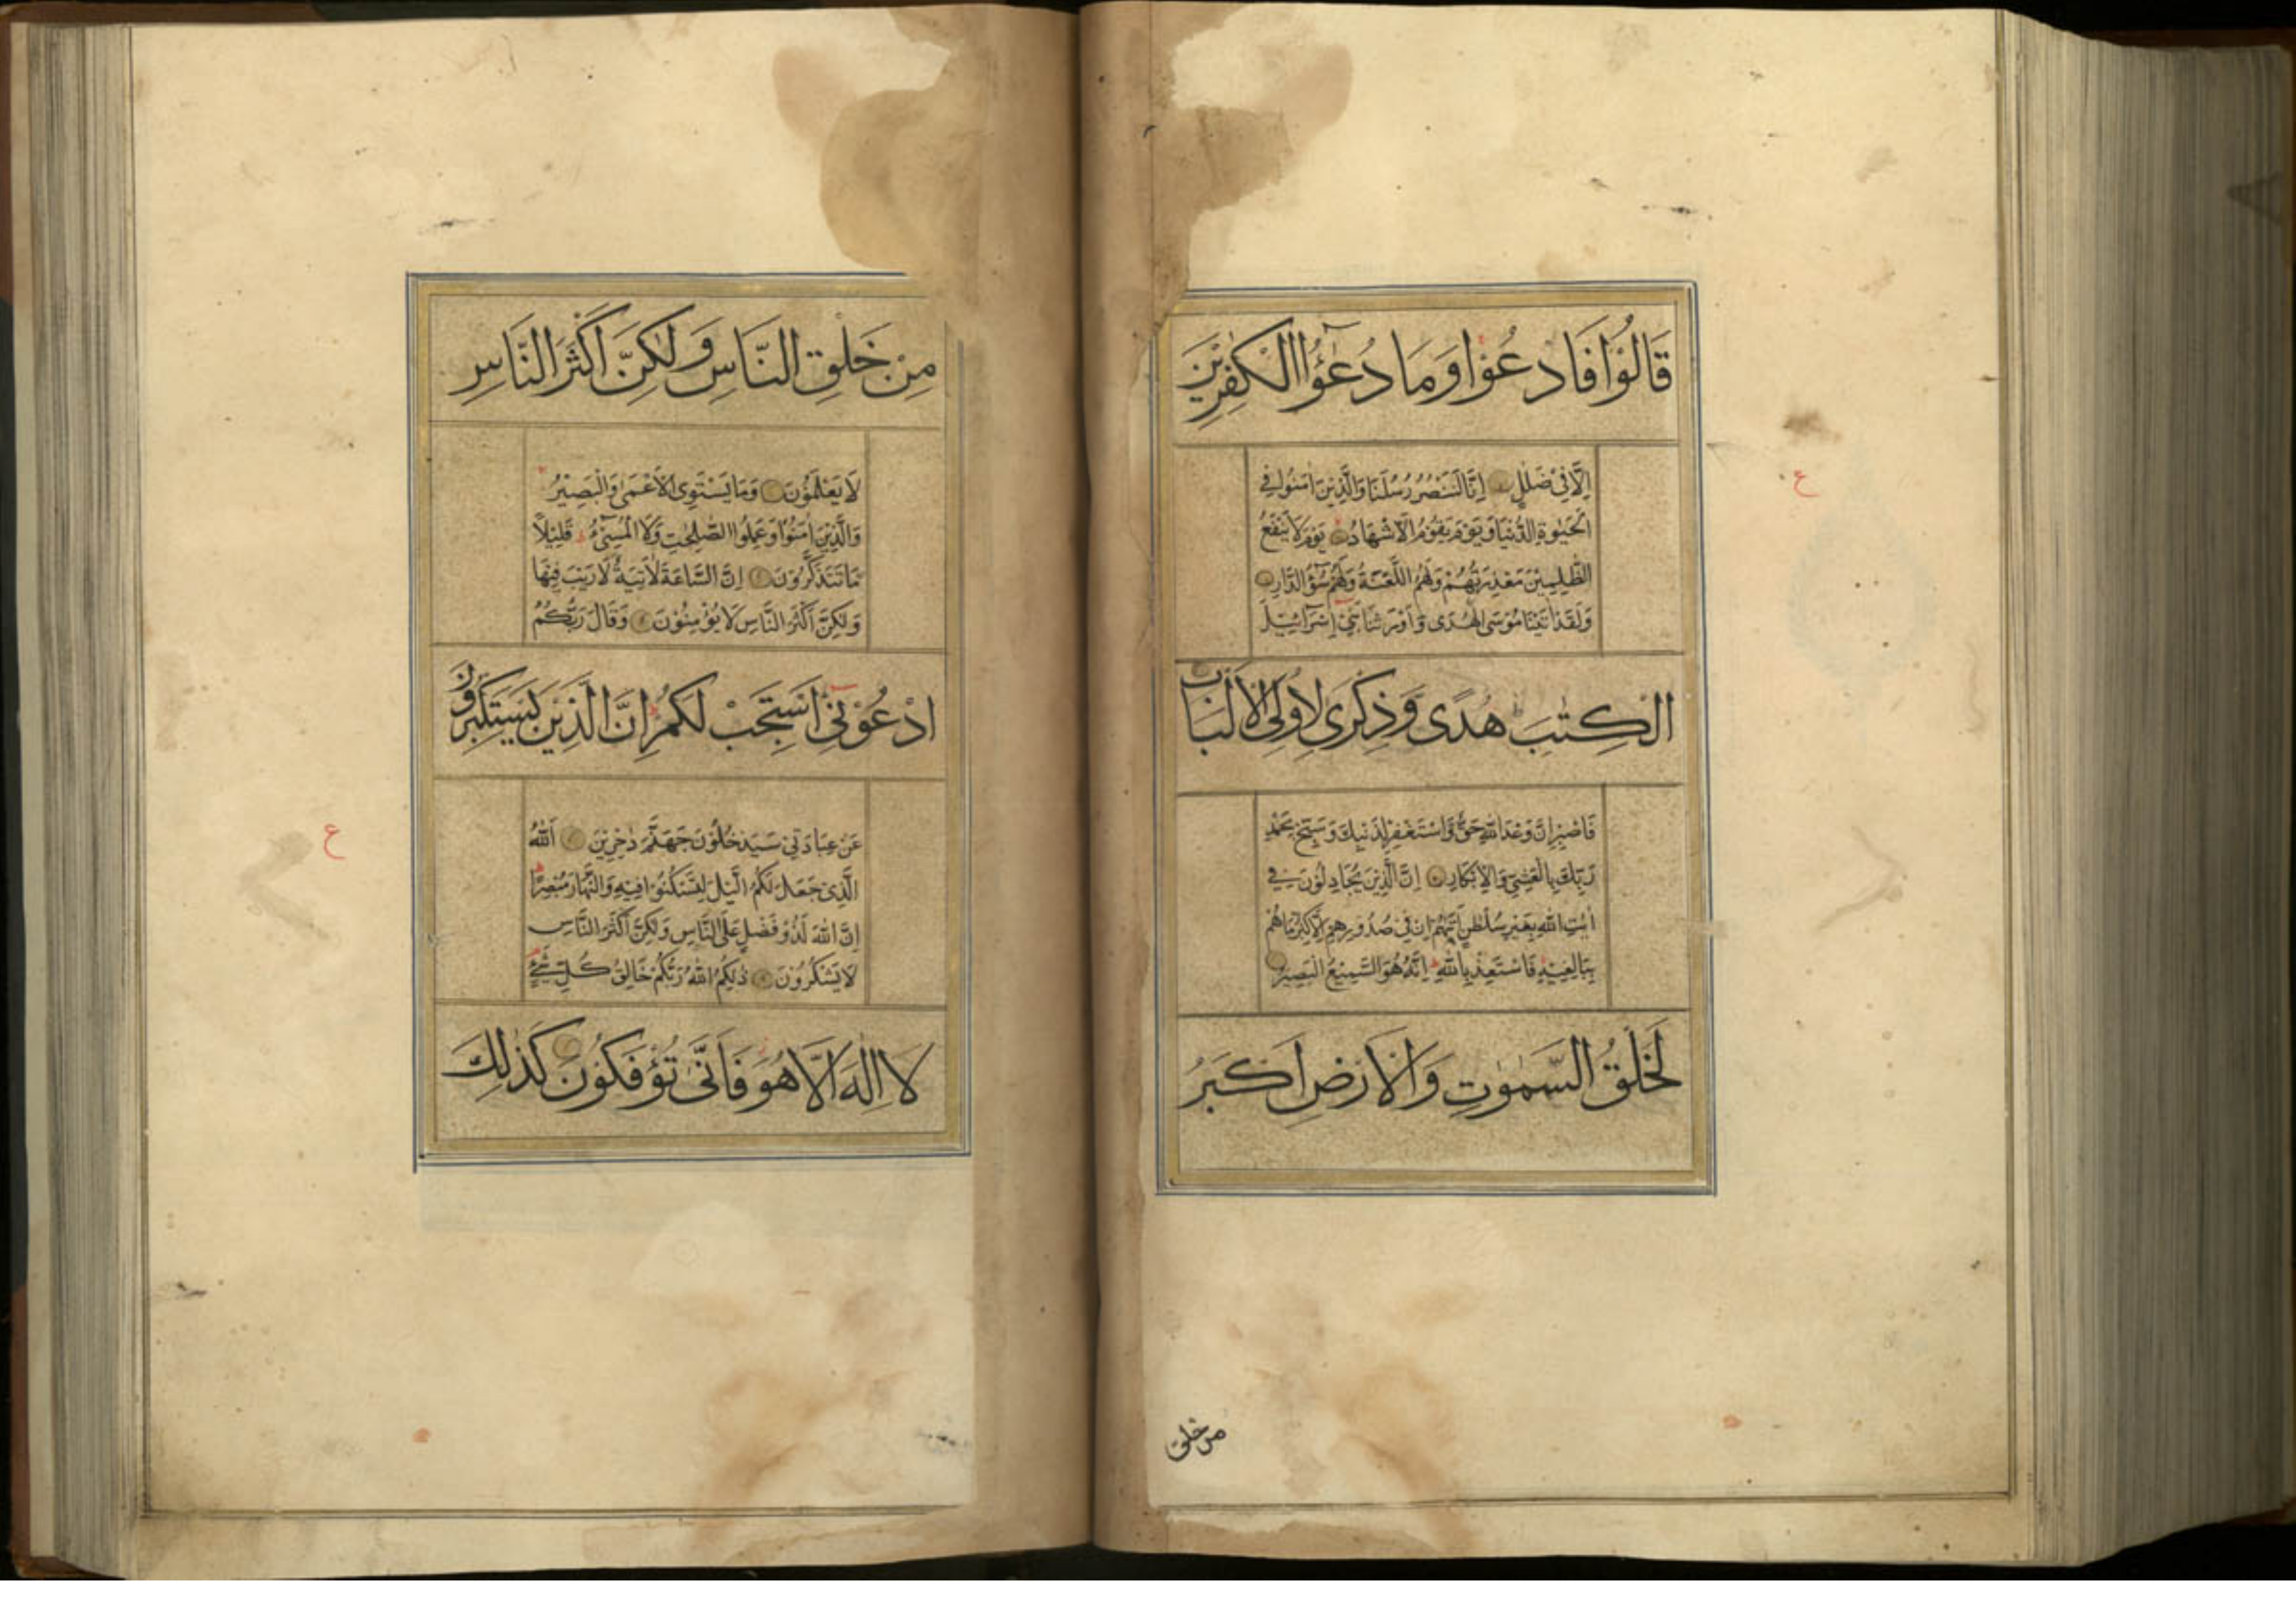 قَالُوْا فَادْعُوْا وَمَا دُعٰٓؤُا الْكٰفِرِيْنَ
اِلَّا فِيْ ضَلٰلٍ اِنَّا لَنَنْصُرُ رُسُلَنَا وَالَّذِيْنَ اٰمَنُوْا فِي
الْحَيٰوةِ الدُّنْيَا وَيَوْمَ يَقُوْمُ الْاَشْهَادُ يَوْمَ لَا يَنْفَعُ
الظّٰلِمِيْنَ مَعْذِرَتُهُمْ وَلَهُمُ اللَّعْنَةُ وَلَهُمْ سُوْٓءُ الدَّارِ
وَلَقَدْ اٰتَيْنَا مُوْسَى الْهُدٰى وَاَوْرَثْنَا بَنِيْٓ اِسْرَآئِيْلَ
الْكِتٰبَ هُدًى وَذِكْرٰى لِاُولِى الْاَلْبَابِ
فَاصْبِرْ اِنَّ وَعْدَ اللّٰهِ حَقٌّ وَّاسْتَغْفِرْ لِذَنْبِكَ وَسَبِّحْ بِحَمْدِ
رَبِّكَ بِالْعَشِيِّ وَالْاِبْكَارِ اِنَّ الَّذِيْنَ يُجَادِلُوْنَ فِيْ
اٰيٰتِ اللّٰهِ بِغَيْرِ سُلْطٰنٍ اَتٰىهُمْ اِنْ فِيْ صُدُوْرِهِمْ اِلَّا كِبْرٌ مَّا هُمْ
بِبَالِغِيْهِ فَاسْتَعِذْ بِاللّٰهِ اِنَّهٗ هُوَ السَّمِيْعُ الْبَصِيْرُ
لَخَلْقُ السَّمٰوٰتِ وَالْاَرْضِ اَكْبَرُ
ع
من خلق
مِنْ خَلْقِ النَّاسِ وَلٰكِنَّ اَكْثَرَ النَّاسِ
لَا يَعْلَمُوْنَ وَمَا يَسْتَوِى الْاَعْمٰى وَالْبَصِيْرُ
وَالَّذِيْنَ اٰمَنُوْا وَعَمِلُوا الصّٰلِحٰتِ وَلَا الْمُسِيْٓءُ قَلِيْلًا
مَّا تَتَذَكَّرُوْنَ اِنَّ السَّاعَةَ لَاٰتِيَةٌ لَّا رَيْبَ فِيْهَا
وَلٰكِنَّ اَكْثَرَ النَّاسِ لَا يُؤْمِنُوْنَ وَقَالَ رَبُّكُمُ
ادْعُوْنِيْٓ اَسْتَجِبْ لَكُمْ اِنَّ الَّذِيْنَ يَسْتَكْبِرُوْنَ
عَنْ عِبَادَتِيْ سَيَدْخُلُوْنَ جَهَنَّمَ دٰخِرِيْنَ اَللّٰهُ
الَّذِىْ جَعَلَ لَكُمُ الَّيْلَ لِتَسْكُنُوْا فِيْهِ وَالنَّهَارَ مُبْصِرًا
اِنَّ اللّٰهَ لَذُوْ فَضْلٍ عَلَى النَّاسِ وَلٰكِنَّ اَكْثَرَ النَّاسِ
لَا يَشْكُرُوْنَ ذٰلِكُمُ اللّٰهُ رَبُّكُمْ خَالِقُ كُلِّ شَيْءٍ
لَا اِلٰهَ اِلَّا هُوَ فَاَنّٰى تُؤْفَكُوْنَ كَذٰلِكَ
ع